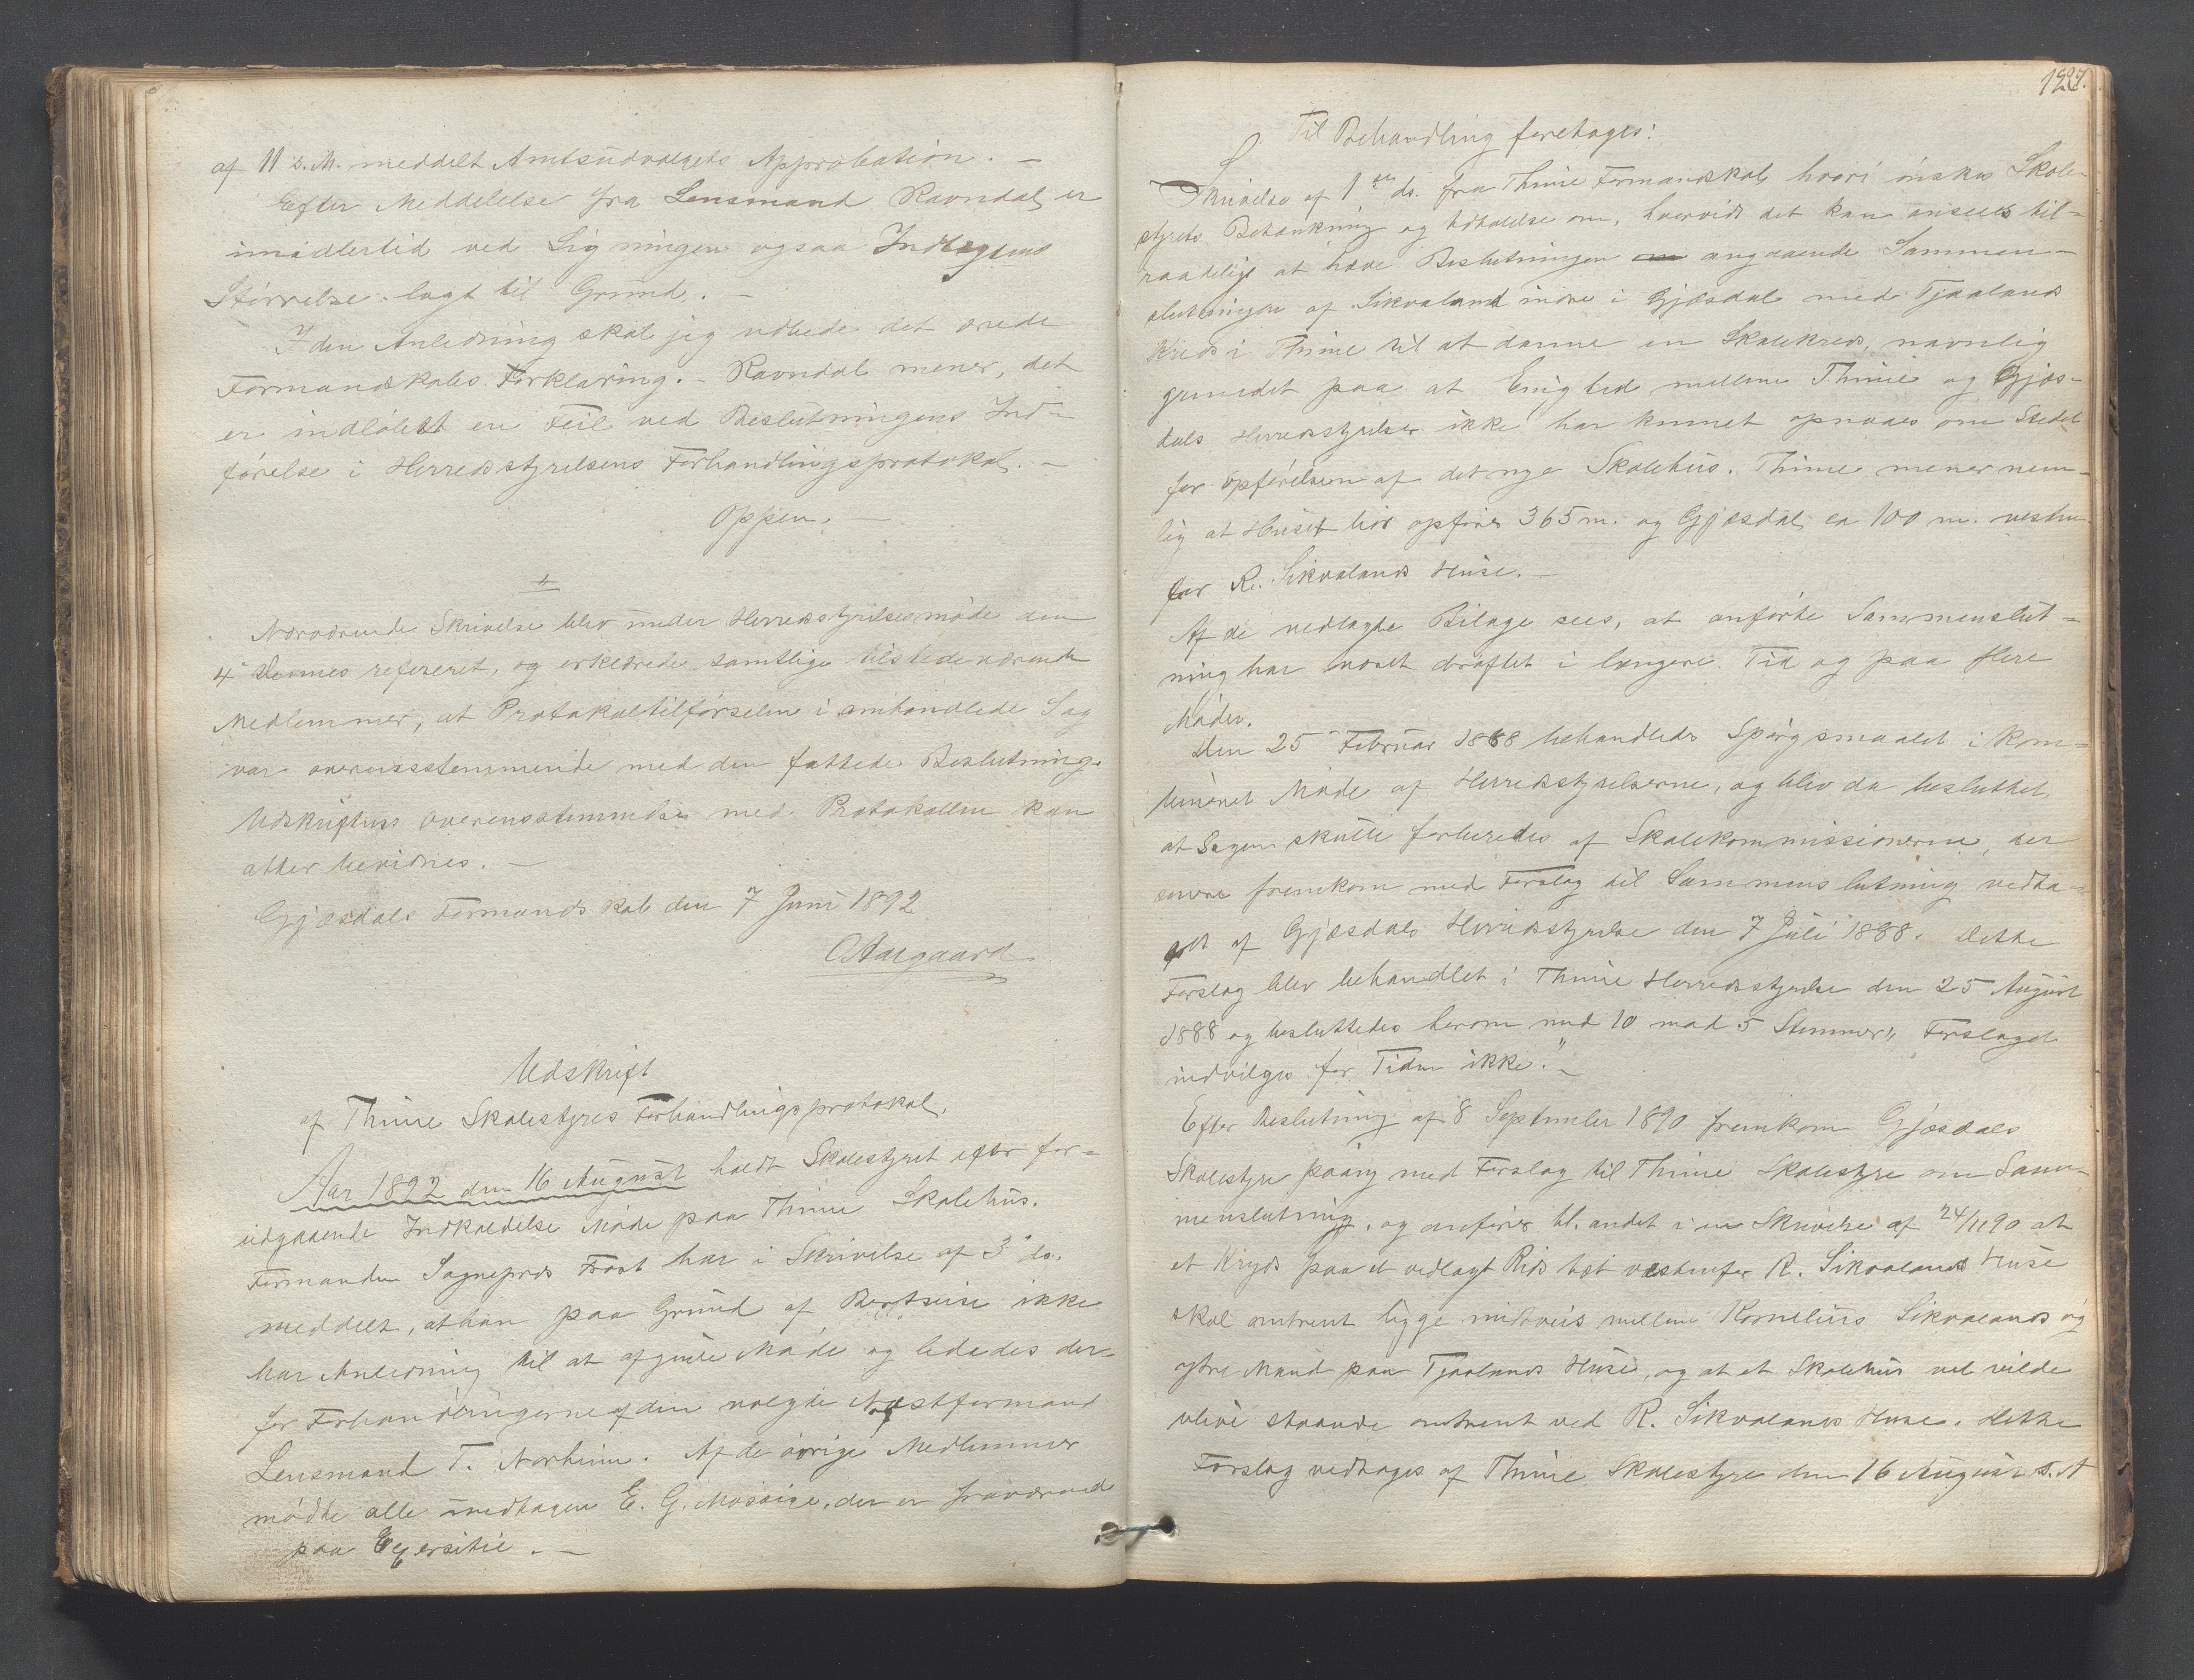 af 11 s. M. meddelt Amtsudvalgets Approbation. —
Efter Meddelelse fra Lensmand Ravndal er
imidlertid ved Ligningen ogsaa Indtægtens
Størrelse lagt til Grund. —
I den Anledning skal jeg udbede det ærede
Formandskabs Forklaring. – Ravndal mener, det
er indløbet en Feil ved Beslutningens Ind-
førelse i Herredsstyrelsens Forhandlingsprotokol. —
Oppen. —
Nærværende Skrivelse blev under Herredsstyrelsesmøde den
4de Dennes refereret, og erklærede samtlige tilstedeværende
Medlemmer, at Protokoltilførselen i omhandlede Sag
var overensstemmende med den fattede Beslutning.
Udskriftens Overensstemmelse med Protokollen kan
atter bevidnes. —
Gjæsdals Formandskab den 7 Juni 1892
C Aargaard
Udskrift
af Thime Skolestyres Forhandlingsprotokol.
Aar 1892 den 16 August holdt Skolestyret efter for-
udgaaende Indkaldelse Møde paa Thime Skolehus.
Formanden Sogneprest Fast har i Skrivelse af 3de ds.
meddelt, at han paa Grund af Bortreise ikke
har Anledning til at afgive Møde og lededes der-
for Forhandlingerne af den valgte Næstformand
Lensmand T. Norheim. Af de øvrige Medlemmer
mødte alle undtagen E. G. Mossige, der er fraværend
paa Exersitie. —
127.
Til Behandling foretoges:
Skrivelse af 1ste ds. fra Thime Formandskab hvori ønskes Skole-
styrets Betænkning og Udtalelse om, hvorvidt det kan ansees til-
raadeligt at hæve Beslutningen om angaaende Sammen-
slutningen af Sikvaland indre i Gjæsdal med Tjaalands
Kreds i Thime til at danne en Skolekreds, navnlig
grundet paa at Enighed mellem Thime og Gjæs-
dals Herredsstyrelser ikke har kunnet opnaaes om Stedet
for Opførelsen af det nye Skolehus. Thime mener nem-
lig at Huset bør opføres 365 m. og Gjæsdal ca 100 m. vesten
for R. Sikvalands Huse. —
Af de vedlagte Bilage sees, at anførte Sammenslut-
ning har været drøftet i længere Tid og paa flere
Møder.
Den 25de Februar 1888 behandledes Spørgsmaalet i kom-
bineret Møde af Herredsstyrelserne, og blev da besluttet,
at Sagen skulle forberedes af Skolekommissionerne, der
senere fremkom med Forslag til Sammenslutning vedta-
get af Gjæsdals Herredsstyrelse den 7 Juli 1888. Dette
Forslag blev behandlet i Thime Herredsstyrelse den 25 August
1888 og besluttedes herom med 10 mod 5 Stemmer „Forslaget
indvilges for Tiden ikke.“ —
Efter Beslutning af 8 September 1890 fremkom Gjæsdals
Skolestyre paany med Forslag til Thime Skolestyre om Sam-
menslutning, og anføres bl. andet i en Skrivelse af 24/11 90 at
et Kryds paa et vedlagt Rids tæt vestenfor R. Sikvalands Huse
skal omtrent ligge midtveis mellem Kornelius Sikvalands og
ytre Mand paa Tjaalands Huse, og at et Skolehus vel vilde
blive staaende omtrent ved R. Sikvalands Huse. Dette
Forslag vedtoges af Thime Skolestyre den 16 August s. A